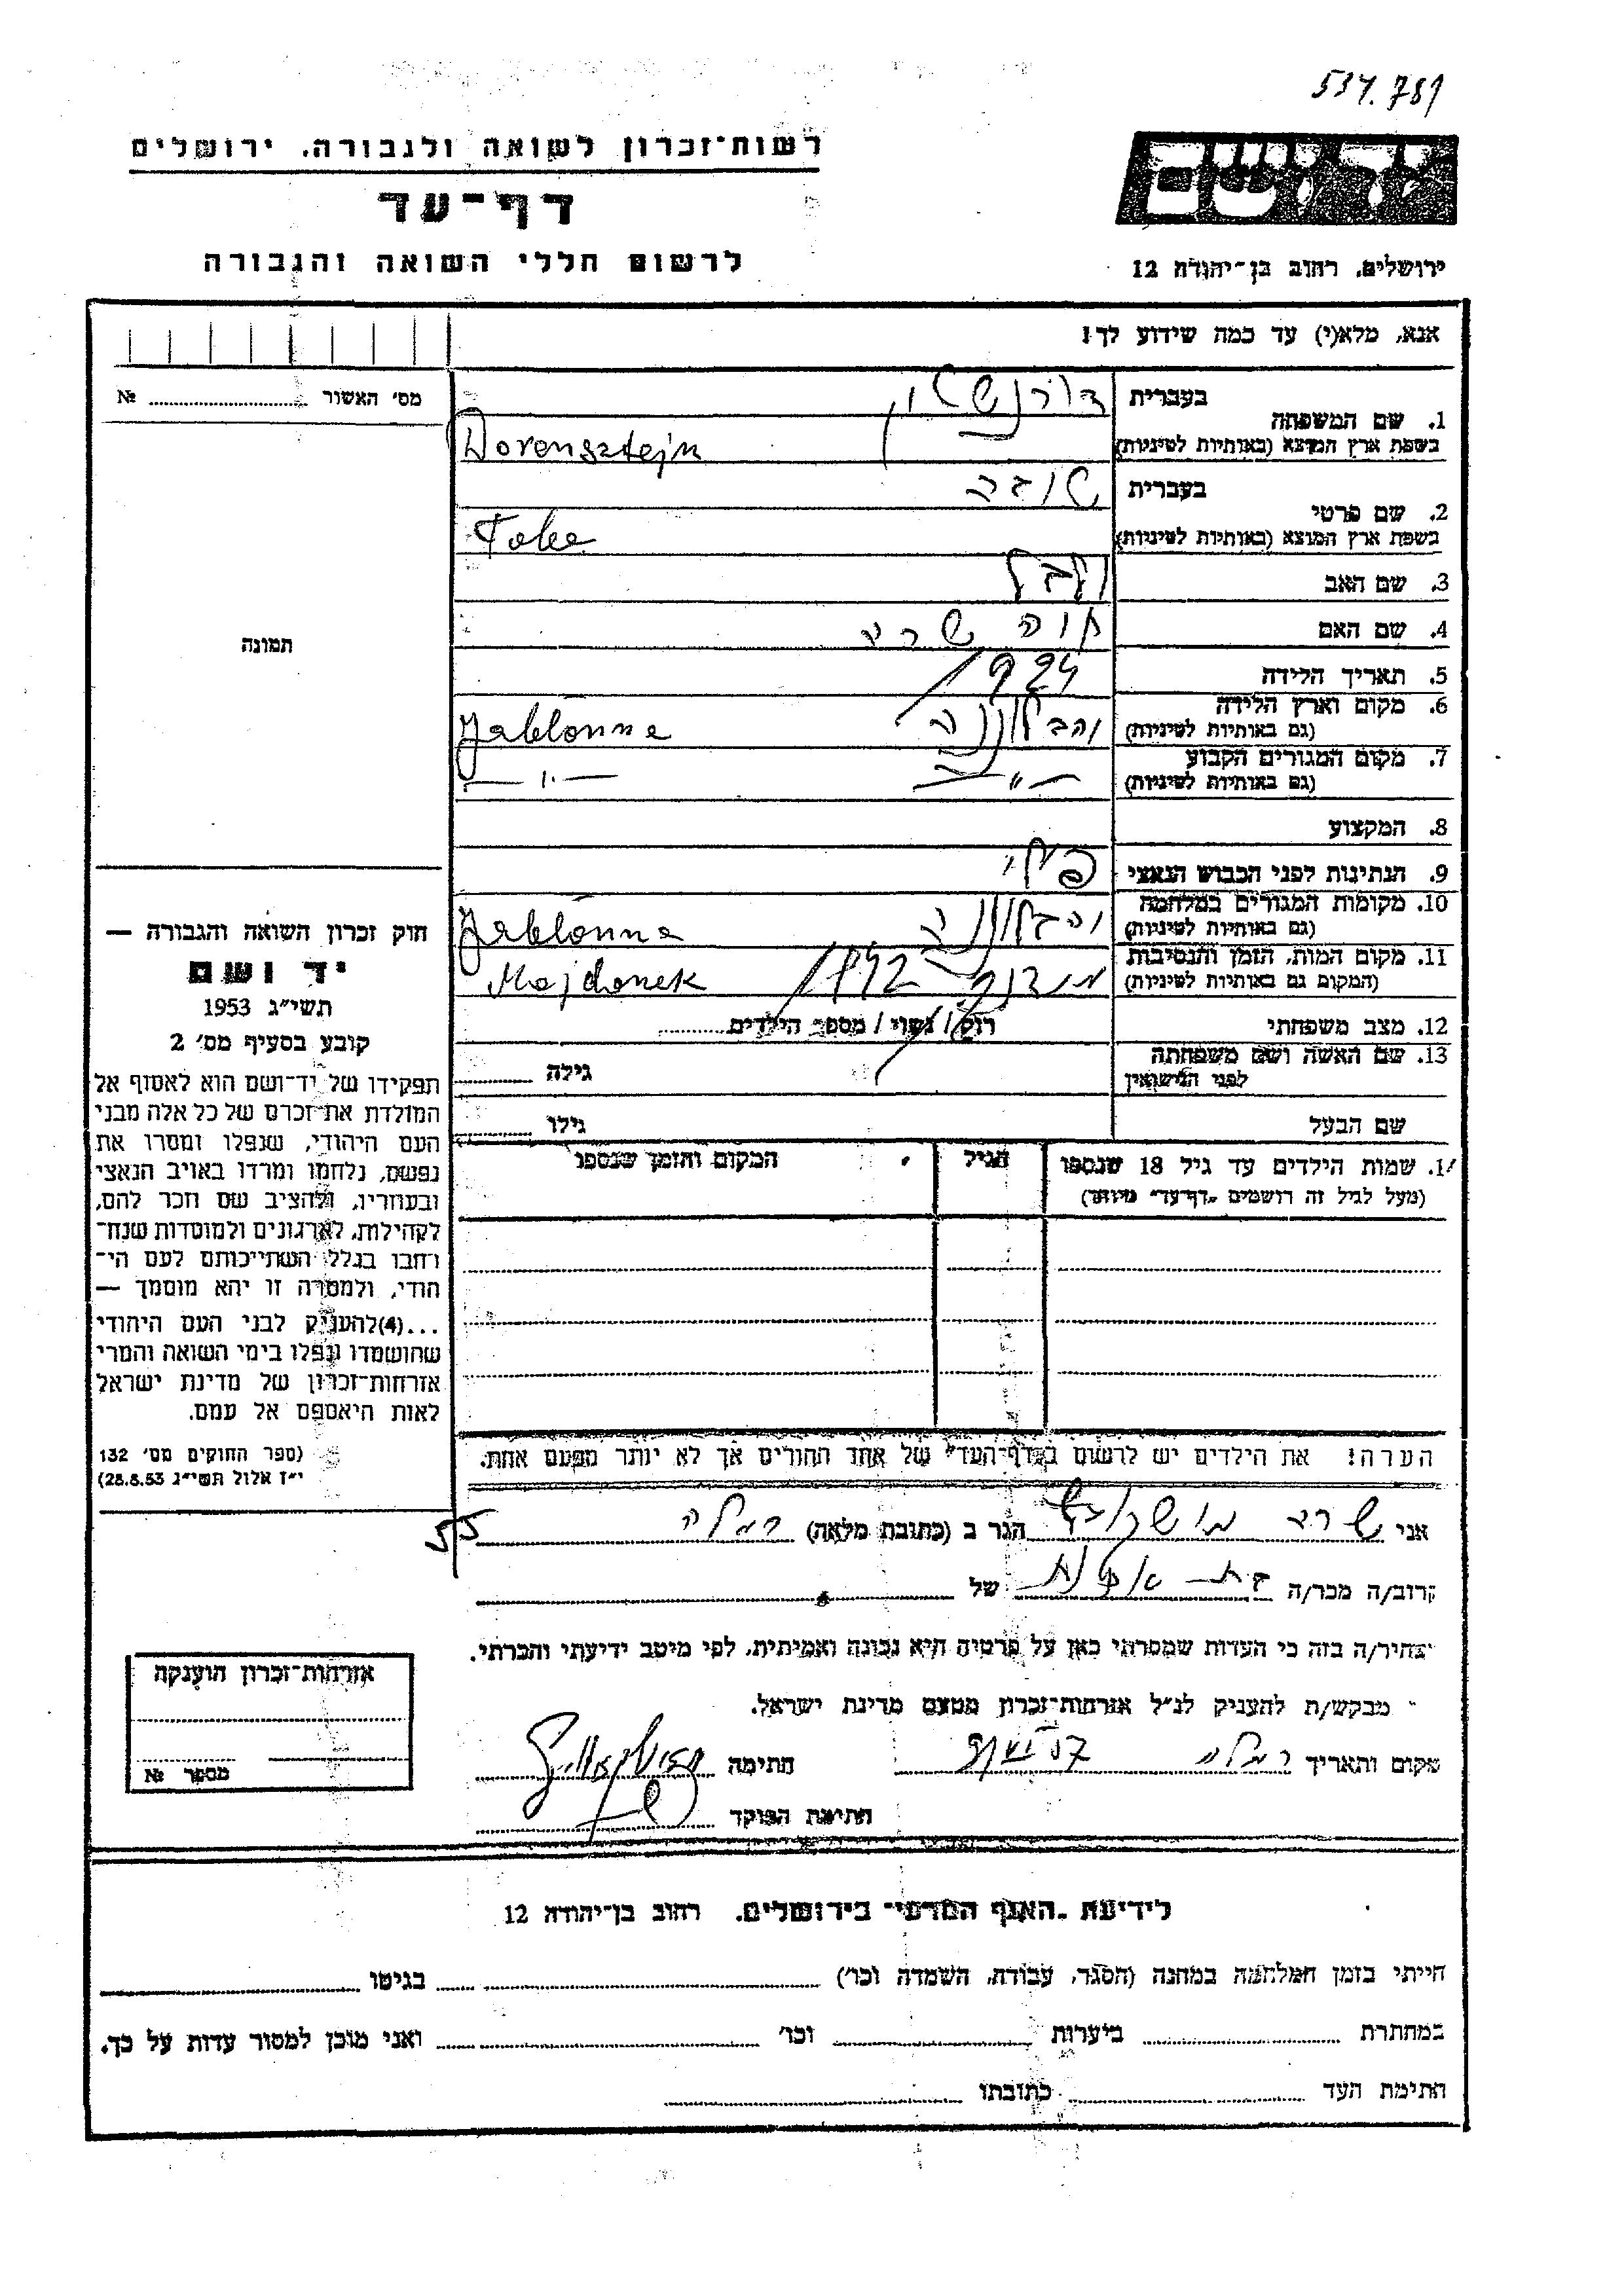 534.789
יד ושם
רשות־זכרון לשואה ולגבורה, ירושלים
דף־עד
לרשום חללי השואה והגבורה
ירושלים, רחוב בן־יהודה 12
אנא, מלא(י) עד כמה שידוע לך!
מס׳ האשור № 
בעברית
1. שם המשפחה
בשפת ארץ המוצא (באותיות לטיניות) Dorensztejn
בעברית
2. שם פרטי
בשפת ארץ המוצא (באותיות לטיניות)
3. שם האב
4. שם האם חוה שרה
5. תאריך הלידה 1924
6. מקום וארץ הלידה יאבלונה Jabłonna
(גם באותיות לטיניות)
7. מקום המגורים הקבוע —״— —״—
(גם באותיות לטיניות)
8. המקצוע
9. הנתינות לפני הכבוש הנאצי פולני
10. מקומות המגורים במלחמה יאבלונה Jabłonna
(גם באותיות לטיניות)
11. מקום המות, הזמן והנסיבות מידנק 1942 Majdanek
(המקום גם באותיות לטיניות)
12. מצב משפחתי רווק / נשוי / מספר הילדים
13. שם האשה ושם משפחתה
לפני הנישואין גילה
שם הבעל גילו
שמות הילדים עד גיל 18 שנספו הגיל המקום והזמן שנספו
(מעל לגיל זה רושמים „דף־עד״ מיוחד)
הערה! את הילדים יש לרשום ב„דף־העד״ של אחד ההורים אך לא יותר מפעם אחת.
תמונה
חוק זכרון השואה והגבורה —
יד ושם
תשי״ג 1953
קובע בסעיף מס׳ 2
תפקידו של יד־ושם הוא לאסוף אל
המולדת את־זכרם של כל אלה מבני
העם היהודי, שנפלו ומסרו את
נפשם, נלחמו ומרדו באויב הנאצי
ובעוזריו, ולהציב שם וזכר להם,
לקהילות, לארגונים ולמוסדות שנח־
רחבו בגלל השתייכותם לעם הי־
הודי, ולמטרה זו יהא מוסמך —
...(4)להעניק לבני העם היהודי
שהושמדו ונפלו בימי השואה והמרי
אזרחות־זכרון של מדינת ישראל
לאות היאספם אל עמם.
(ספר החוקים מס׳ 132
י״ז אלול תשי״ג 28.8.53)
אני שרה הגר ב (כתובת מלאה) רמלה
קרוב/ה מכר/ה של
מצהיר/ה בזה כי העדות שמסרתי כאן על פרטיה היא נכונה ואמיתית, לפי מיטב ידיעתי והכרתי.
מבקש/ת להעניק לנ״ל אזרחות־זכרון מטעם מדינת ישראל.
מקום ותאריך רמלה חתימה
חתימת הפוקד
אזרחות־זכרון הוענקה
מספר №
לידיעת „האגף המדעי״ בירושלים, רחוב בן־יהודה 12
הייתי בזמן המלחמה במחנה (הסגר, עבודה, השמדה וכו׳) בגיטו
במחתרת ביערות וכו׳ ואני מוכן למסור עדות על כך.
חתימת העד כתובתו